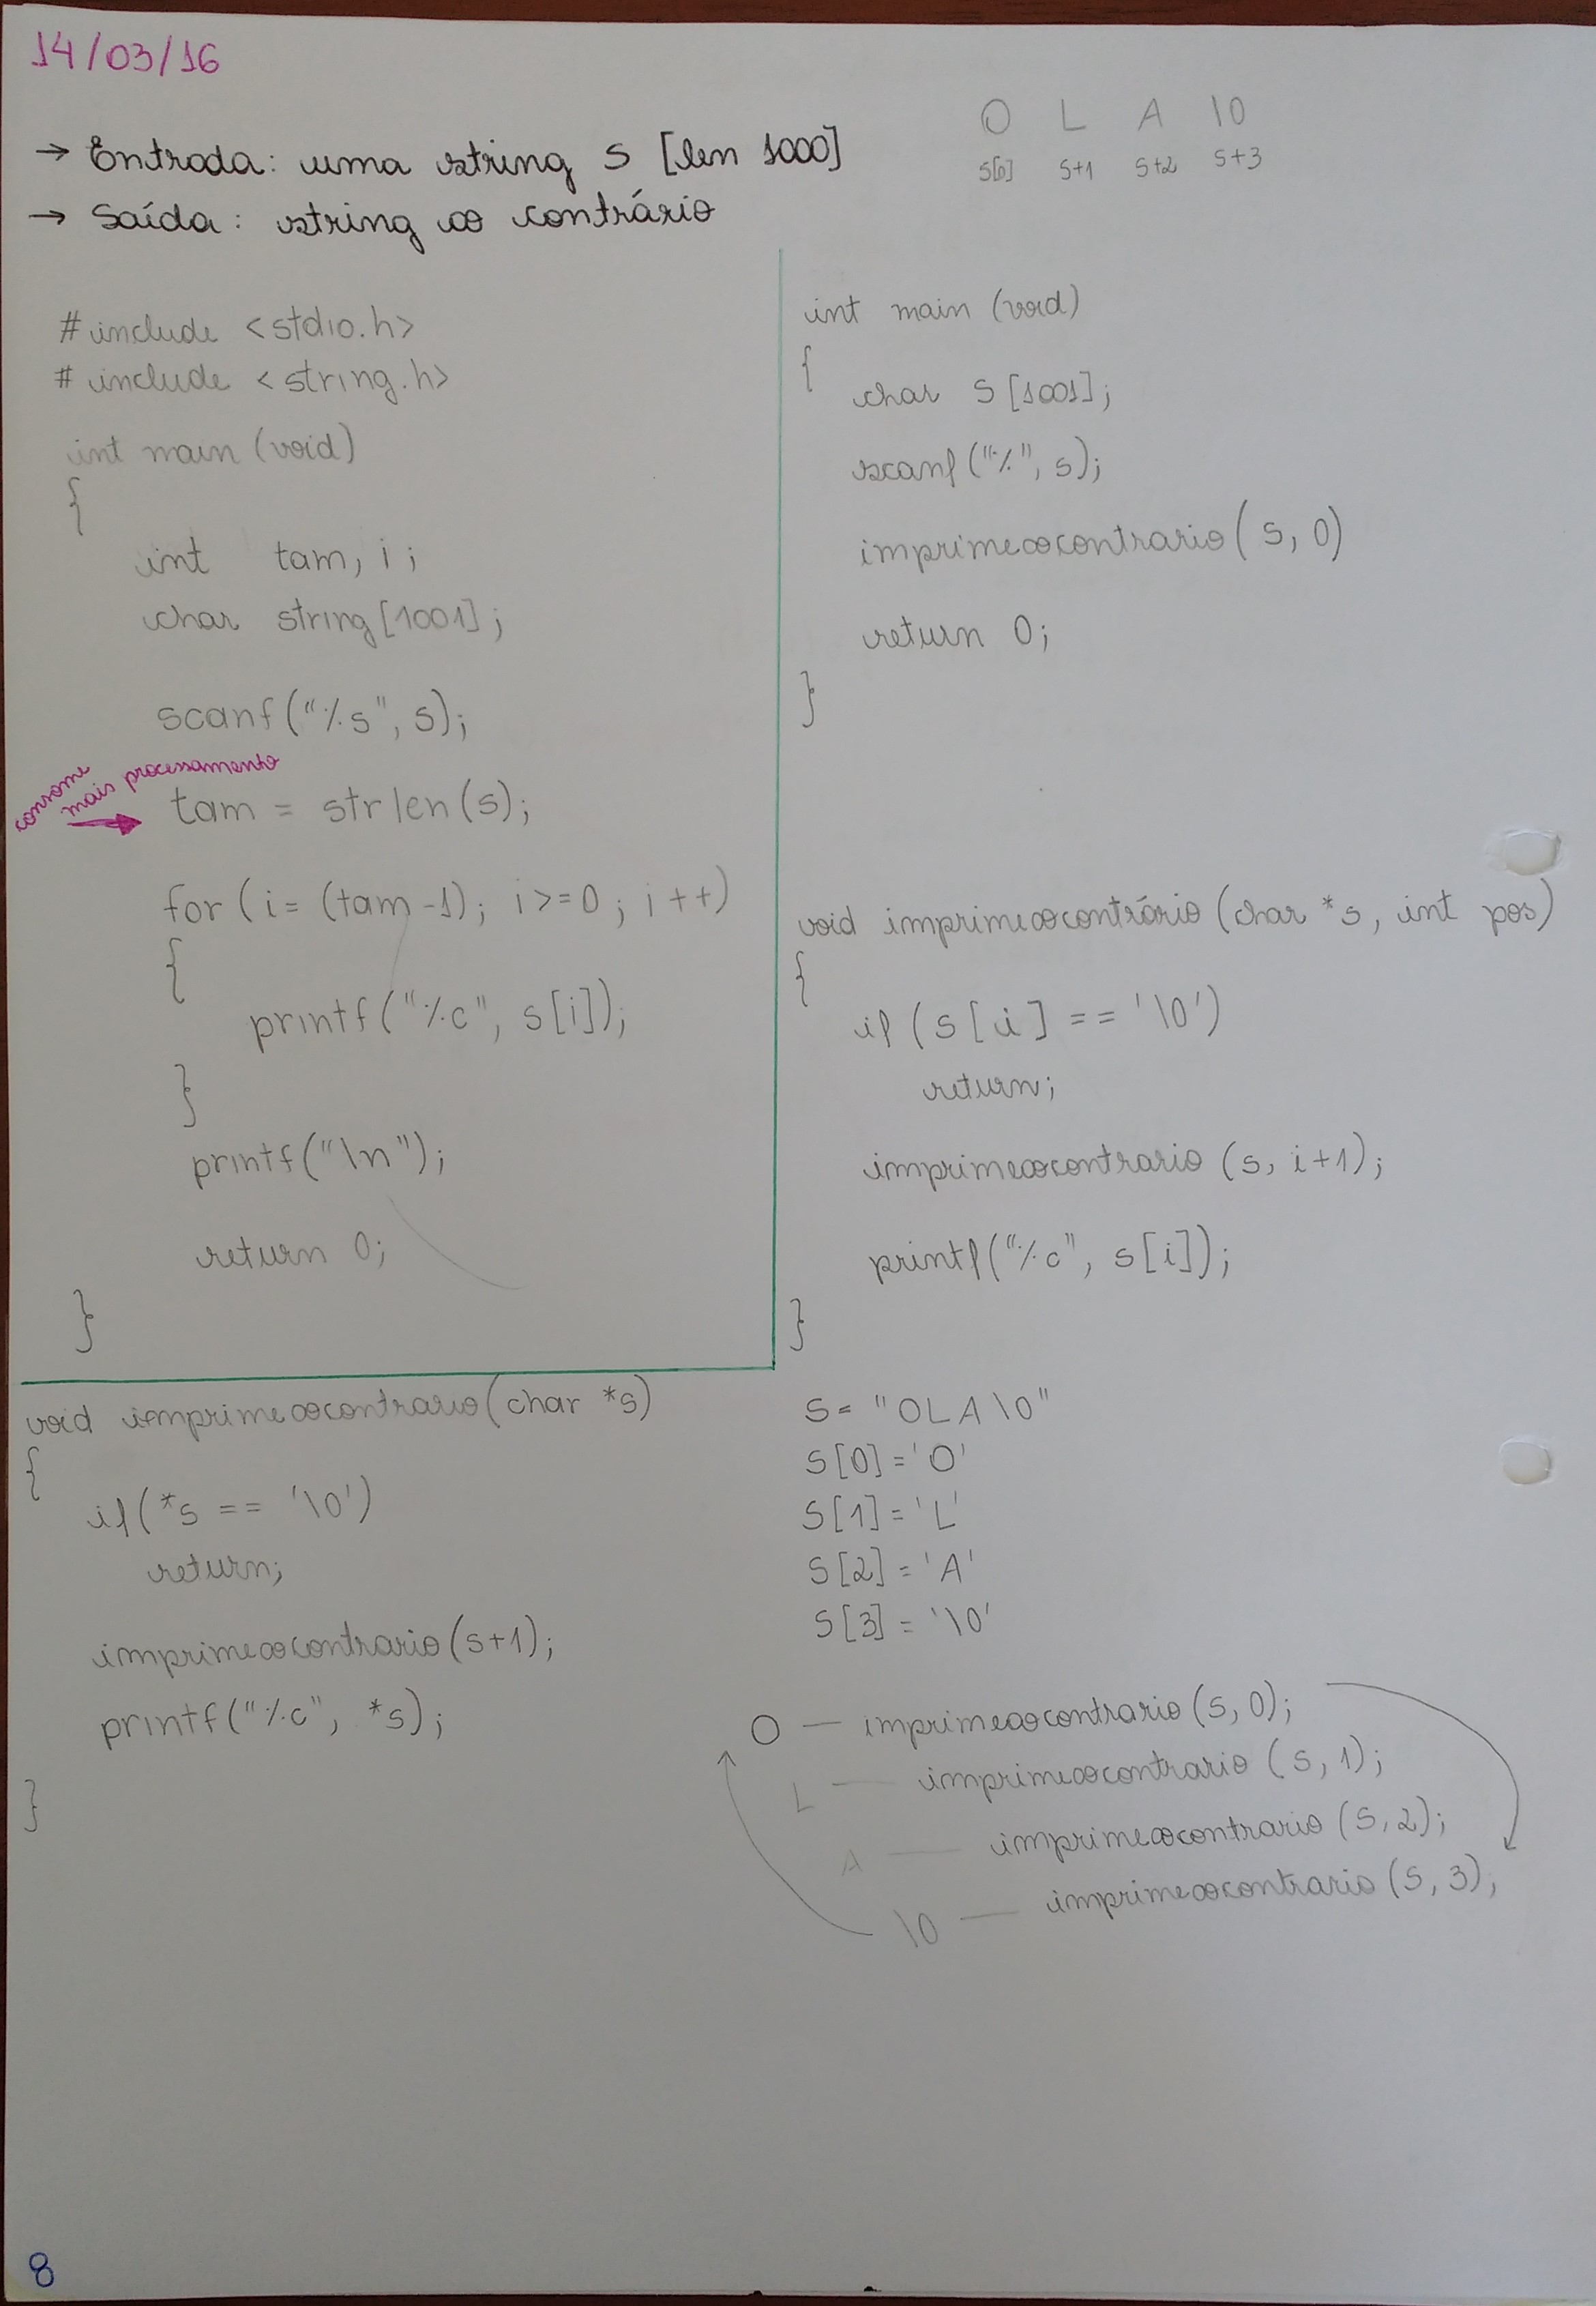 14/03/16
O L A \0
s[0] s+1 s+2 s+3
→ Entrada: uma string s [len 1000]
→ Saída: string ao contrário
#include <stdio.h>
#include <string.h>
int main (void)
{
int tam, i;
char string[1001];
scanf("%s", s);
consome
mais processamento
tam = strlen(s);
for (i= (tam-1); i>=0; i++)
{
printf("%c", s[i]);
}
printf("\n");
return 0;
}
int main (void)
{
char s[1001];
scanf("%", s);
imprimeaocontrario(s, 0)
return 0;
}
void imprimeaocontrário(char *s, int pos)
{
if (s[i] == '\0')
return;
imprimeaocontrario (s, i+1);
printf("%c", s[i]);
}
void imprimeaocontrario(char *s)
{
if(*s == '\0')
return;
imprimeaocontrario(s+1);
printf("%c", *s);
}
S= "OLA\0"
S[0]='O'
S[1]='L'
S[2]='A'
S[3]='\0'
O — imprimeaocontrario(s,0);
L — imprimeaocontrario (s,1);
A — imprimeaocontrario (s,2);
\0 — imprimeaocontrario (s,3);
8